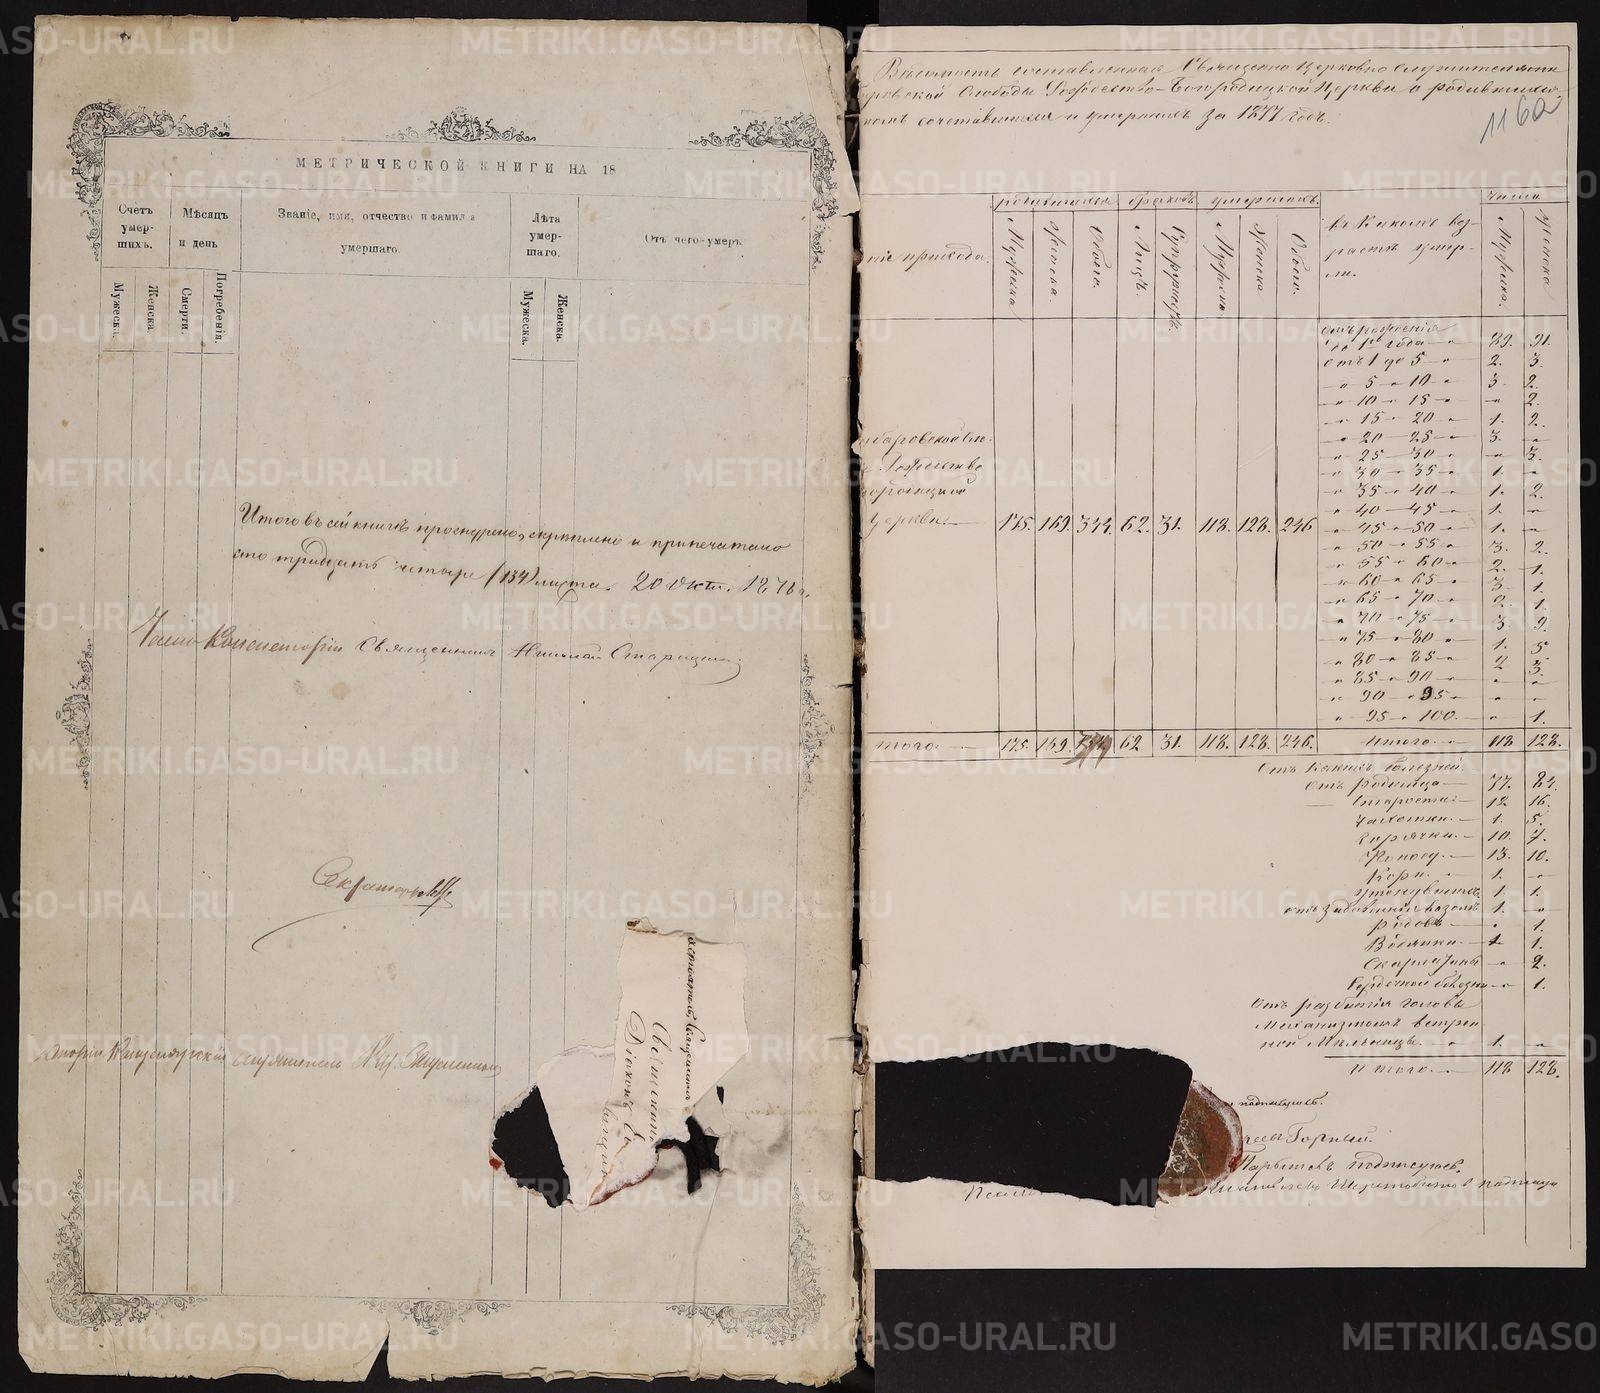 МЕТРИЧЕСКОЙ КНИГИ НА 18
Счетъ умер- шихъ.
Мѣсяцъ и день
Званіе, имя, отчество и фамилія умершаго.
Лѣта умер- шаго.
Отъ чего умеръ.
Мужеска.
Женска.
Смерти.
Погребенія.
Мужеска.
Женска.
Итого въ сей книгѣ прошнуровано, скрѣплено и припечатано
сто тридцать четыре (134) листа. 20 Окт. 1876 г.
Членъ Консисторіи Священникъ
Секретарь
Канцелярскій служитель
Священникъ
Діаконъ
Вѣдомость составленная Священно Церковно служителями
Слободы Рождество-Богородицкой Церкви о родившихся,
сочетавшихся и умершихъ за 1877 годъ.
116а
родившихся браковъ умершихъ. числа
ніе прихода.
Мужеска
Женска.
Обоего.
Лицъ.
Супружествъ.
Мужеска
Женска
Обоего.
въ какомъ воз-
растѣ умер-
ли.
Мужеска.
Женска
отъ рожденія
до 1го года 89. 91.
отъ 1 до 5 2. 3.
5 10 3. 2.
10 15 2.
15 20 1. 2.
20 25 3.
25 30 3.
30 35 1.
35 40 1. 2.
40 45 1.
45 50 1.
50 55 3. 2.
55 60 2. 1.
60 65 3. 1.
65 70 2. 1.
70 75 3. 9.
75 80 1. 5
80 85 2 3.
85 90
90 95
95 100. 1.
баровской Сло.
Рождество
Богородицкой
Церкви. 175. 169. 344. 62. 31. 118. 128. 246
того. 175. 169. 344 62 31. 118. 128. 246. Итого 118 128.
Отъ какихъ болезней.
Отъ Родимца 77. 84.
Старости 12 16.
Чахотки. 1. 5.
Горячки. 10. 7.
Поносу. 13. 10.
Кори. 1.
утонувшихъ 1. 1.
1.
Родовъ 1.
Водянки. 1. 1.
Скарлатины 2.
Сердечной болезни 1.
Отъ разбитія головы
механизмомъ ветрен
ной Мельницы. 1.
Итого. 118 128.
подписуюсь.
Горный.
подписуюсь.